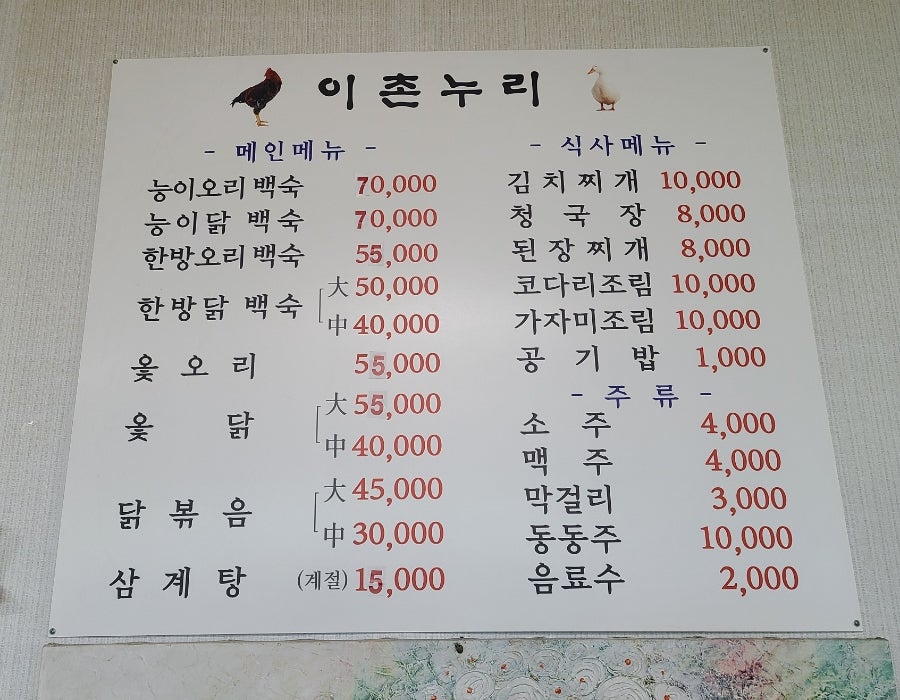 이촌누리
- 메인메뉴 -
능이오리백숙 70,000
능이닭 백숙 70,000
한방오리백숙 55,000
한방닭 백숙 大 50,000
中 40,000
옻 오 리 55,000
옻 닭 大 55,000
中 40,000
닭 볶 음 大 45,000
中 30,000
삼 계 탕 (계절) 15,000
- 식사메뉴 -
김 치 찌 개 10,000
청 국 장 8,000
된 장 찌 개 8,000
코다리조림 10,000
가자미조림 10,000
공 기 밥 1,000
- 주 류 -
소 주 4,000
맥 주 4,000
막걸리 3,000
동동주 10,000
음료수 2,000